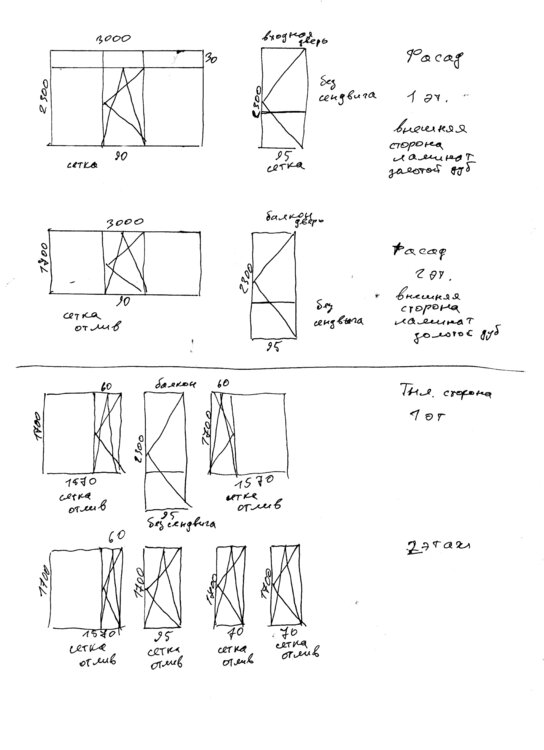 3000
30
2300
90
сетка
входная
дверь
2300
без
сендвига
95
сетка
Фасад
1 эт.
внешняя
сторона
ламинат
золотой дуб
3000
1700
90
сетка
отлив
балкон
дверь
2300
без
сендвига
95
Фасад
2 эт.
внешняя
сторона
ламинат
золотой дуб
60
1700
1570
сетка
отлив
балкон
2300
95
без сендвига
60
1700
1570
сетка
отлив
сторона
1 эт
60
1700
1570
сетка
отлив
1700
95
сетка
отлив
1700
70
сетка
отлив
1700
70
сетка
отлив
2 этаж